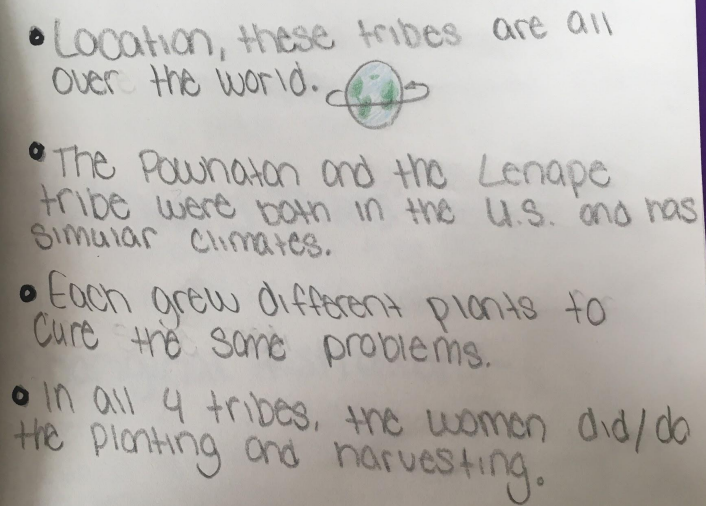 • Location, these tribes are all
over the world.
• The Pownaton and the Lenape
tribe were both in the U.S. and has
simular climates.
• Each grew different plants to
cure the same problems.
• In all 4 tribes, the women did/do
the planting and harvesting.